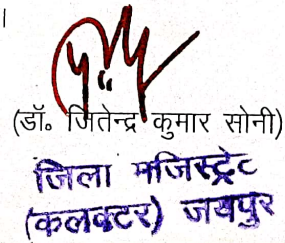 ।
(डॉ० जितेन्द्र कुमार सोनी)
जिला मजिस्ट्रेट
(कलक्टर) जयपुर